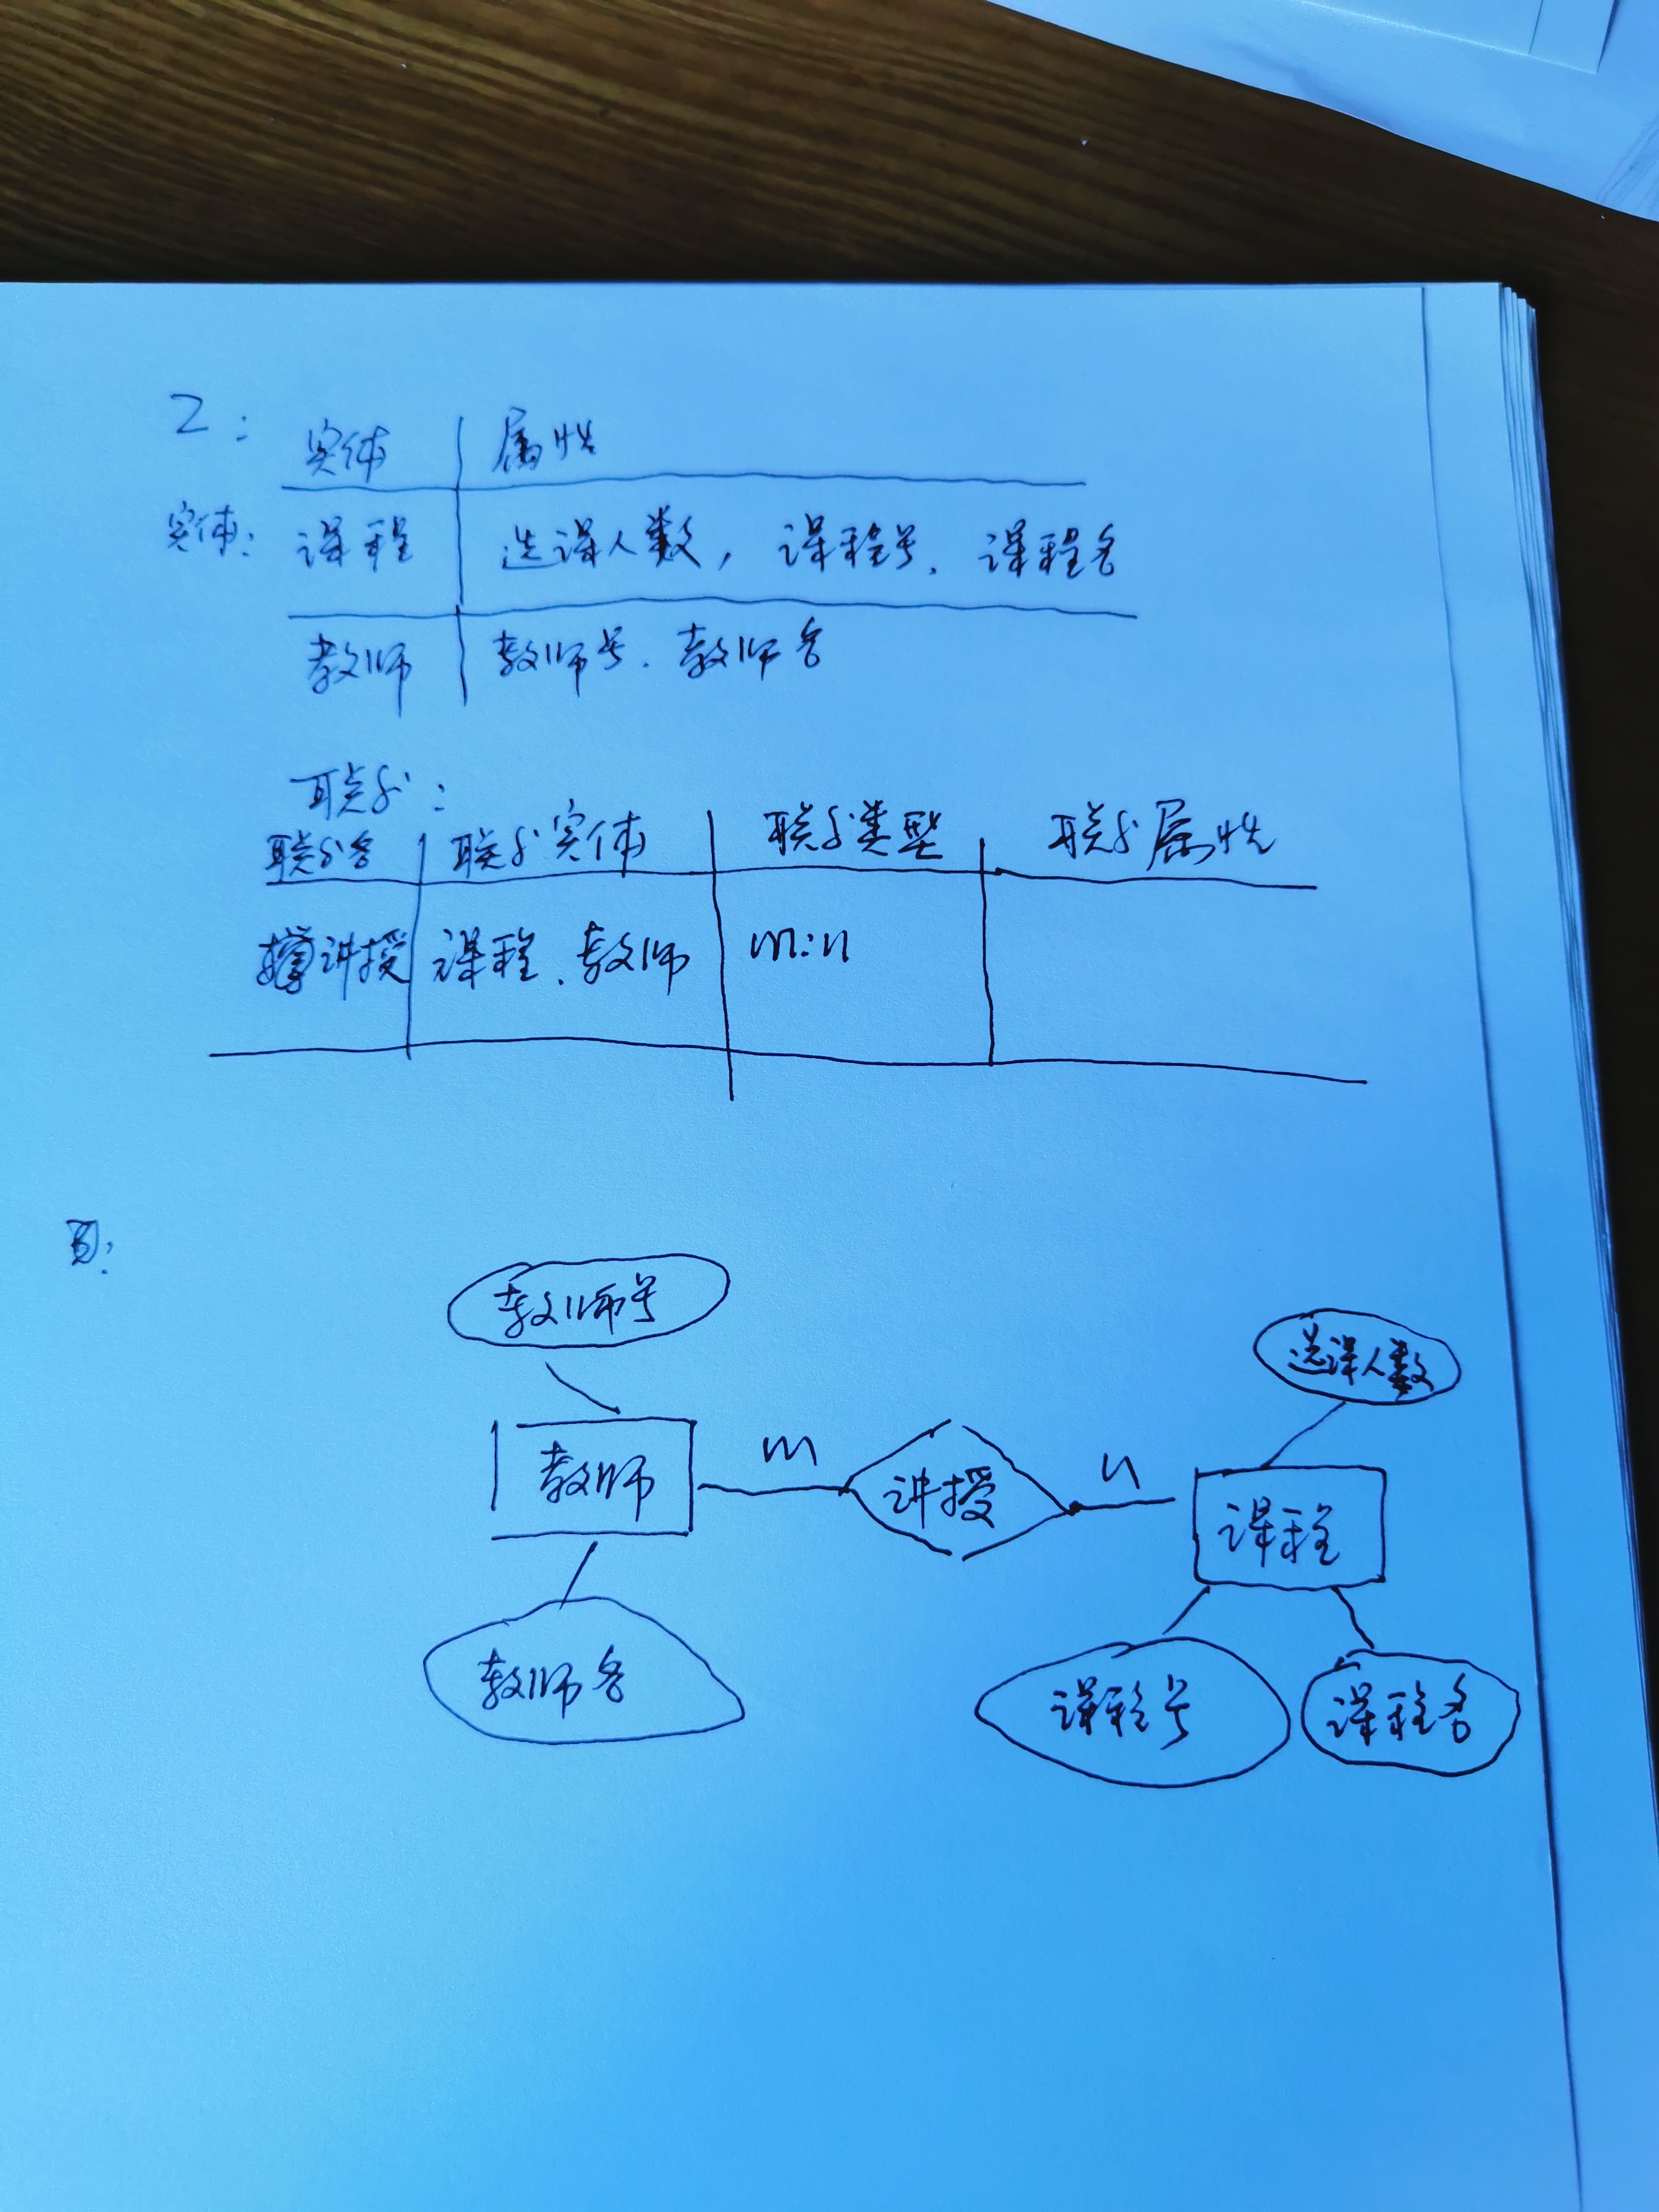 2:
实体 属性
实体: 课程 选课人数, 课程号、课程名
教师 教师号、教师名
联系:
联系名 联系实体 联系类型 联系属性
讲授 课程、教师 m:n
图:
教师号
选课人数
教师 m 讲授 n 课程
教师名 课程号 课程名